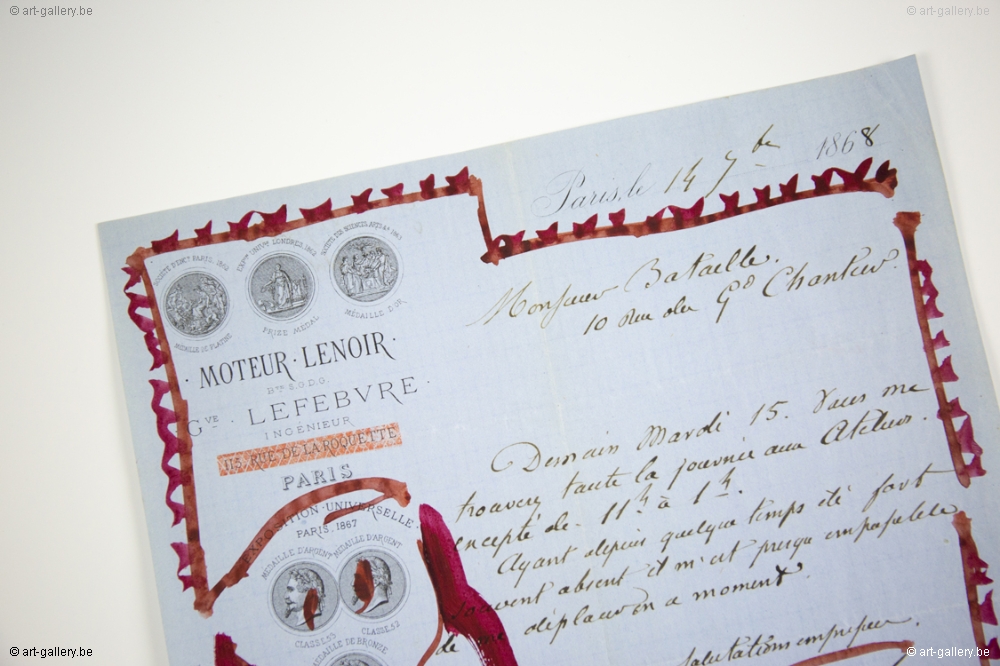 © art-gallery.be
© art-gallery.be
Paris, le 14 7bre 1868
SOCIÉTÉ D'ENCT PARIS
EXPON UNIVLLE LONDRES 1862
MÉDAILLE DE PLATINE
PRIZE MEDAL
MÉDAILLE D'OR
MOTEUR · LENOIR ·
BTÉ S.G.D.G.
GVE · LEFEBVRE ·
INGÉNIEUR
115, RUE DE LA ROQUETTE
PARIS
EXPOSITION UNIVERSELLE
PARIS, 1867
MÉDAILLE D'ARGENT MÉDAILLE D'ARGENT
CLASSE 53 CLASSE 52
MÉDAILLE DE BRONZE
Monsieur Bataille.
10 Rue du Gd Chantier.
Demain Mardi 15. Vous me
trouvez toute la journée aux Ateliers.
excepté de 11h à 1h.
Ayant depuis quelque temps été fort
souvent absent il m'est presque impossible
de me déplacer en ce moment.
salutations empressées.
© art-gallery.be
© art-gallery.be